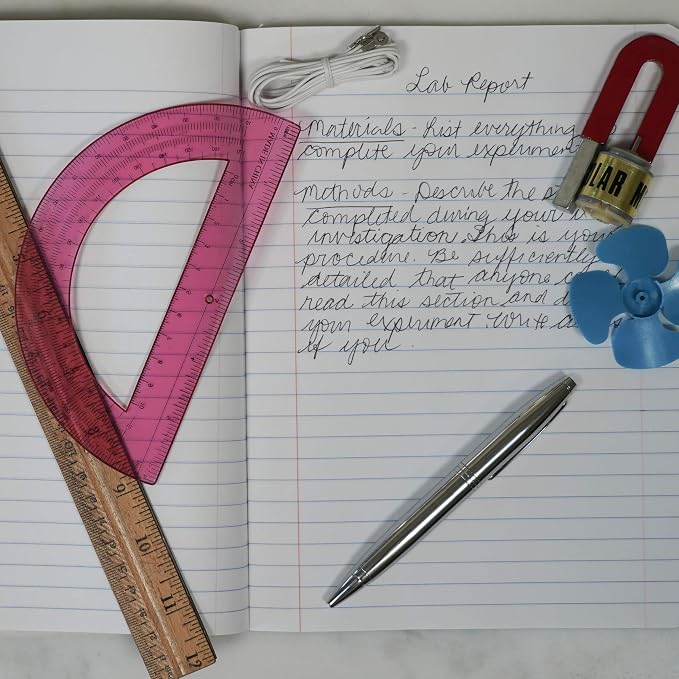 Lab Report
Materials - List everything
complete your experimen
Methods - Describe the
completed during your
investigation. This is your
procedure. Be sufficiently
detailed that anyone co
read this section and d
your experiment. Write as
if you.
MADE IN CHINA
LAR M
8
9
10
11
12